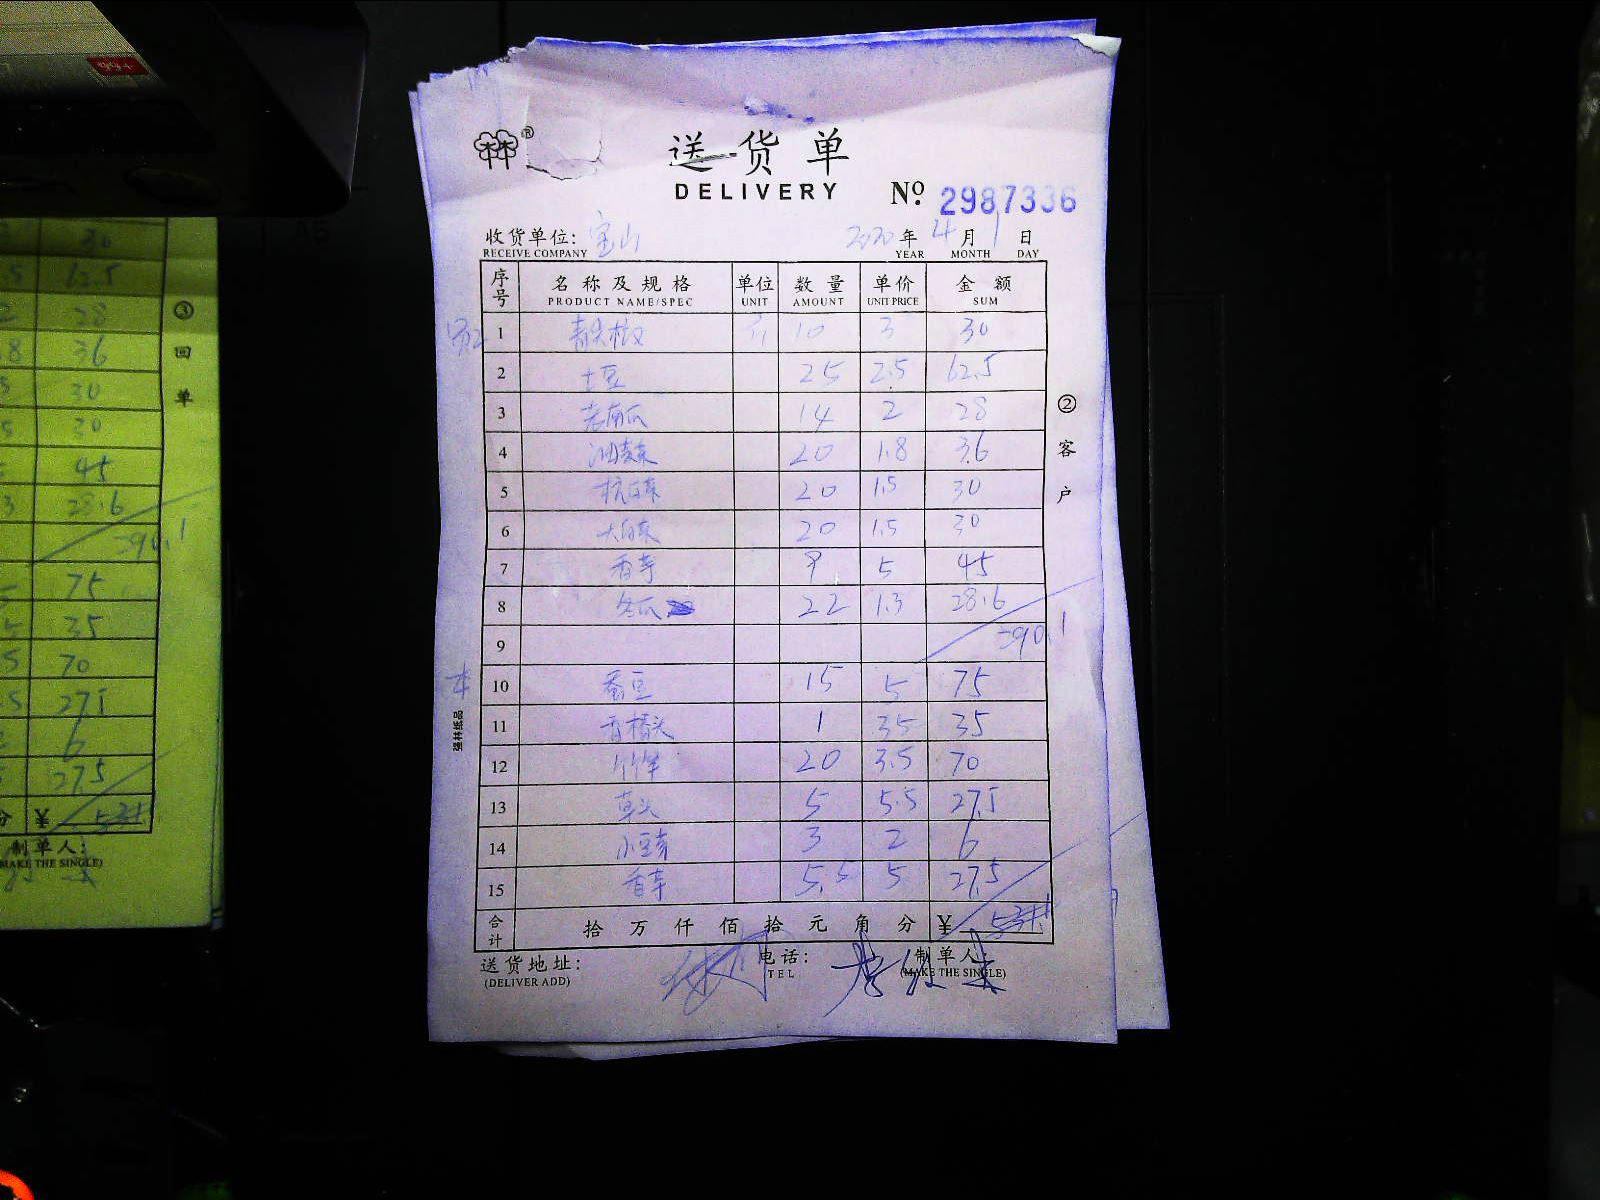 林®
送货单
DELIVERY
№ 2987336
收货单位: 宝山 2020年4月1日
RECEIVE COMPANY YEAR MONTH DAY
序号 名称及规格 单位 数量 单价 金额
PRODUCT NAME/SPEC UNIT AMOUNT UNIT PRICE SUM
1 青尖椒 斤 10 3 30
2 土豆 25 2.5 62.5
3 老南瓜 14 2 28
4 油麦菜 20 1.8 36
5 杭白菜 20 1.5 30
6 大白菜 20 1.5 30
7 香芋 9 5 45
8 冬瓜 22 1.3 28.6
9 290.1
10 蚕豆 15 5 75
11 香椿头 1 35 35
12 竹笋 20 3.5 70
13 草头 5 5.5 27.5
14 小豆芽 3 2 6
15 香芋 5.5 5 27.5
合计 拾万仟佰拾元角分 ¥
送货地址: 电话: 制单人:
(DELIVER ADD) TEL (MAKE THE SINGLE)
②客户
强林纸品
30
62.5
28
36
30
30
45
28.6
290.1
75
35
70
27.5
6
27.5
分 ¥
制单人:
(MAKE THE SINGLE)
③回单
99+